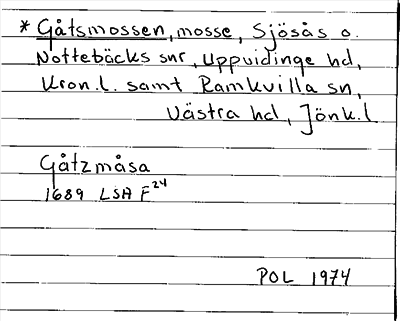 * Gåtsmossen, mosse, Sjösås o.
Nottebäcks snr, Uppvidinge hd,
Kron.l. samt Ramkvilla sn,
Västra hd, Jönk.l
Gåtzmåsa
1689 LSA F24
POL 1974